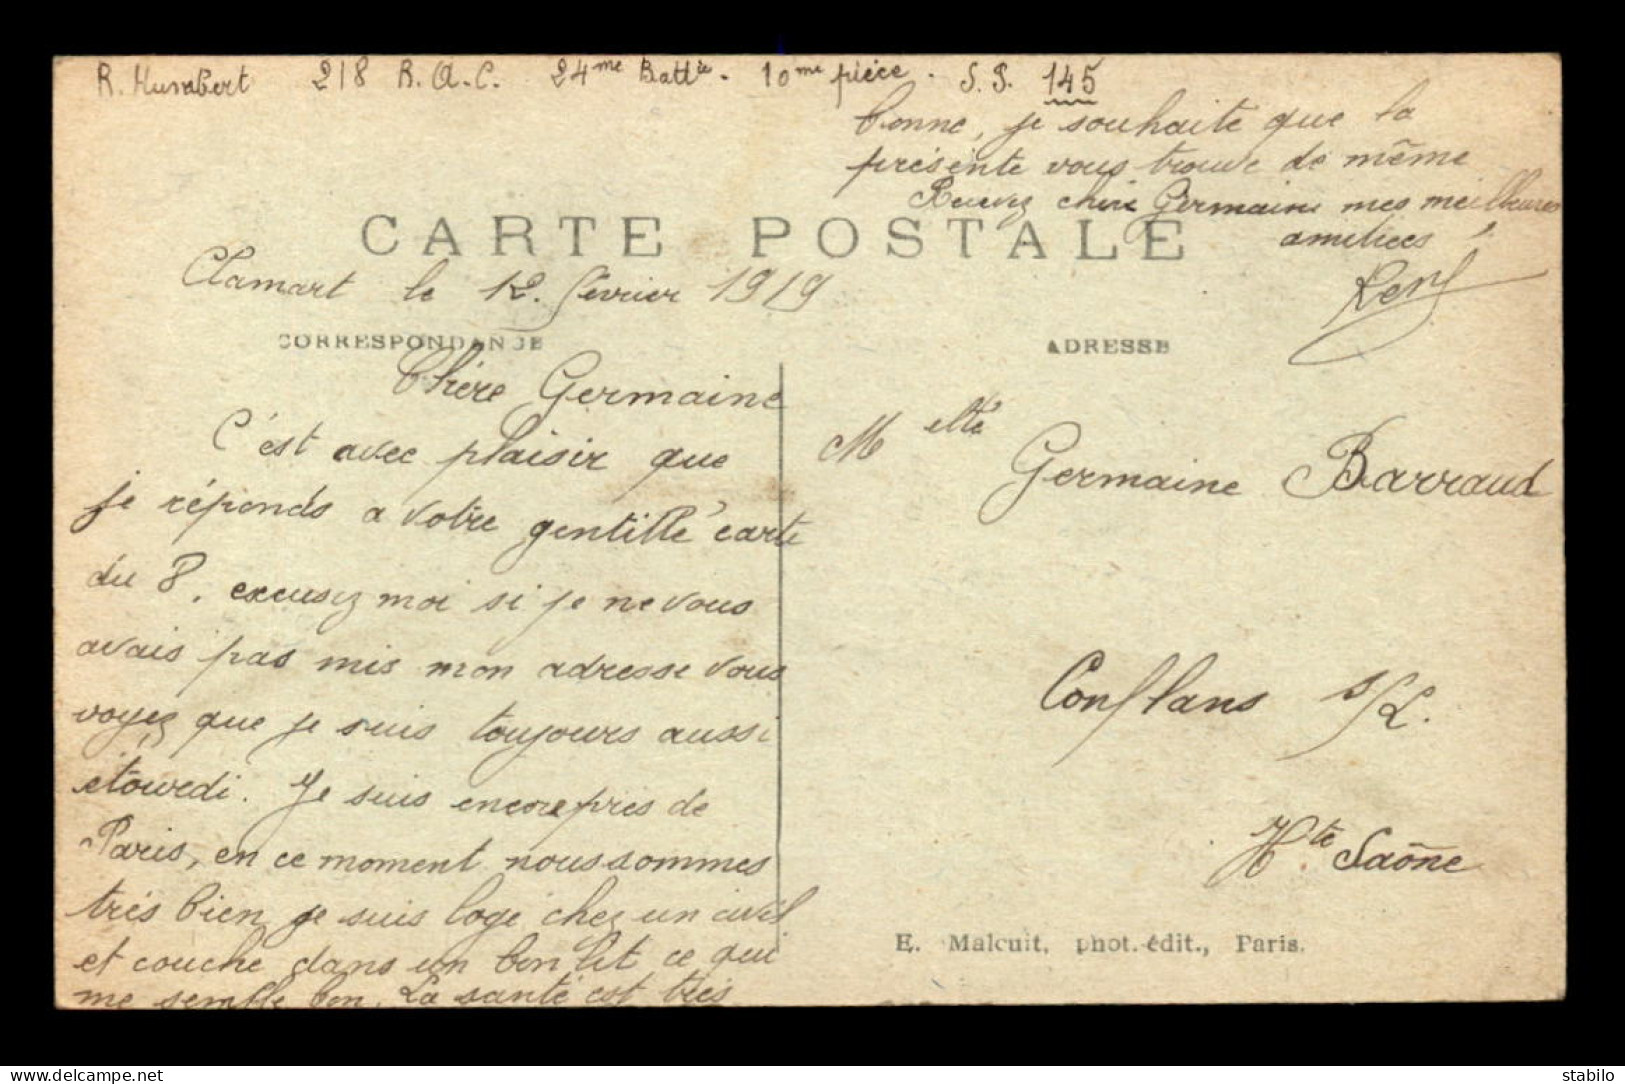 R. Humbert 218 R.A.C. 24me Battie - 10me pièce. S.P. 145
CARTE POSTALE
Clamart le 12. février 1919
CORRESPONDANCE
Chère Germaine
C'est avec plaisir que
je réponds a votre gentille carte
du 8, excusez moi si je ne vous
avais pas mis mon adresse vous
voyez que je suis toujours aussi
étourdi. Je suis encore près de
Paris, en ce moment nous sommes
très bien, je suis logé chez un civil
et couche dans un bon lit ce qui
me semble bon. La santé est très
bonne, je souhaite que la
présente vous trouve de même
Recevez chère Germaine mes meilleures
amitiées
René
ADRESSE
Melle Germaine Barraud
Conflans s/L.
Hte Saône
E. Malcuit, phot. édit., Paris.
stabilo